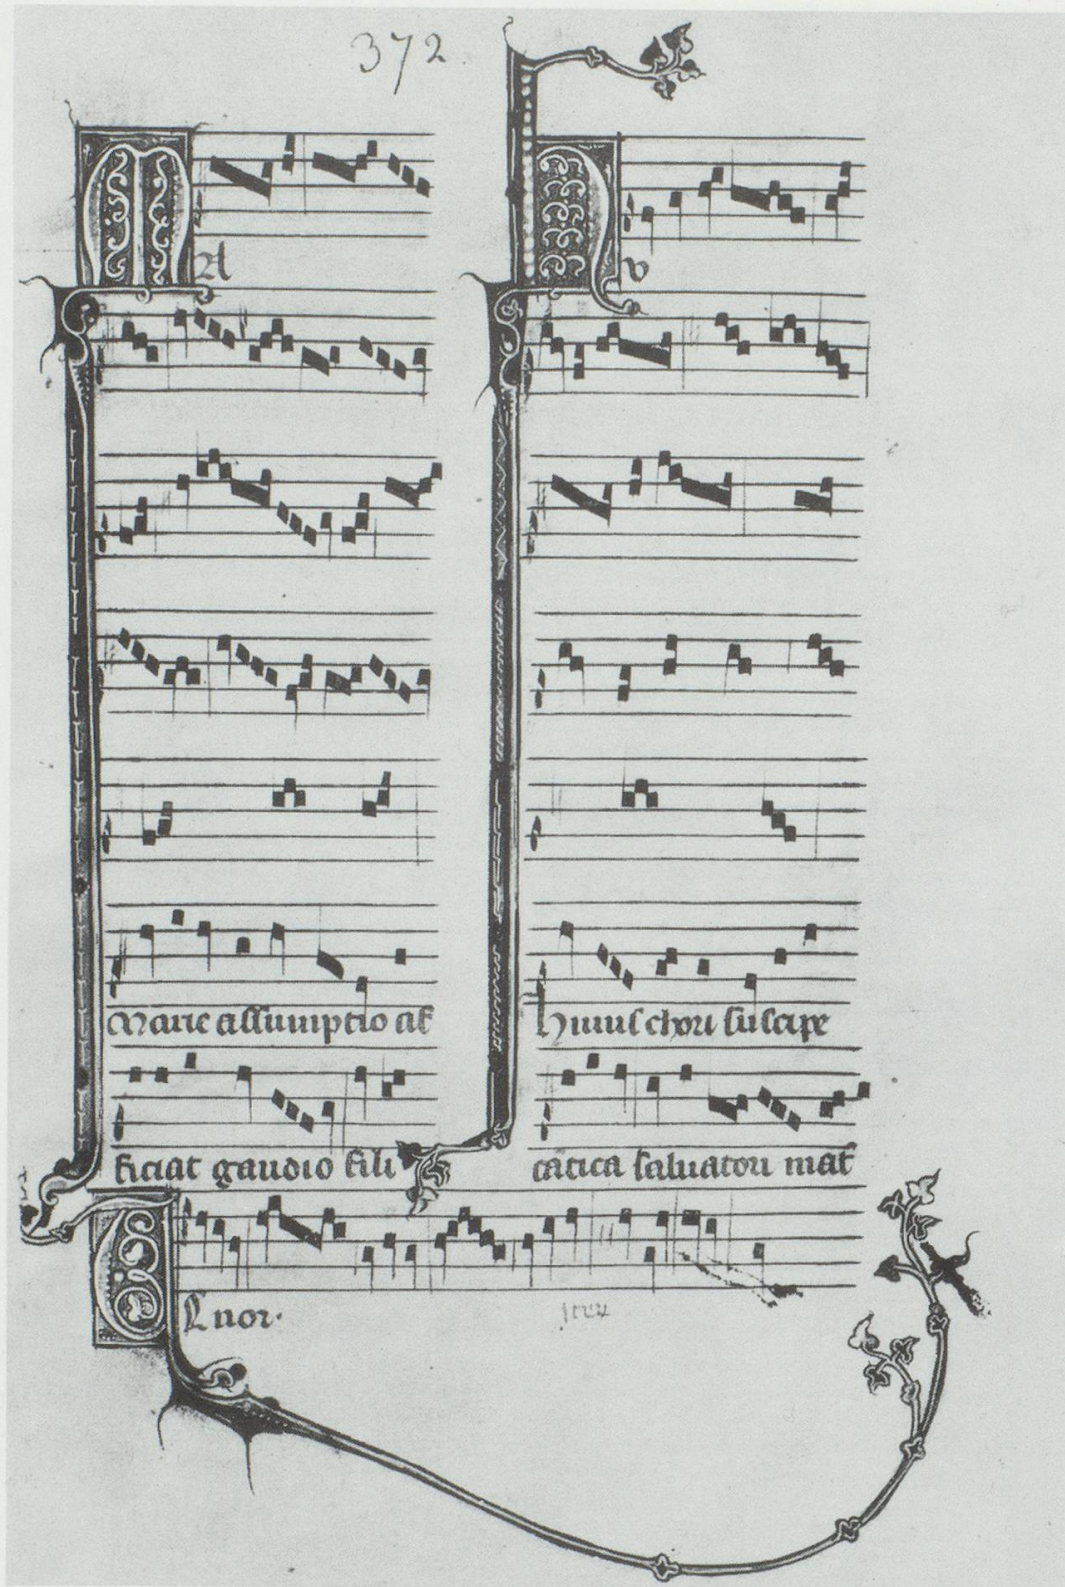 372
MA
Marie assumptio af
ficiat gaudio fili
Hu
huius chori suscipe
cātica saluatori mat̄
Tenor.